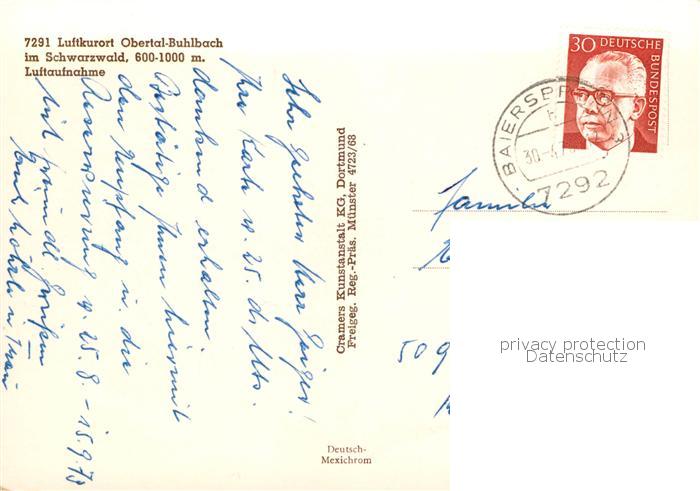 7291 Luftkurort Obertal-Buhlbach
im Schwarzwald, 600-1000 m.
Luftaufnahme
Sehr geehrter Herr Geiger!
Ihre Karte v. 25. d. Mts.
dankend erhalten.
Bestätige Ihnen hiermit
den Empfang u. die
Reservierung v. 25.8. - 15.9.73
Mit freundl. Grüßen
u. Frau
Cramers Kunstanstalt KG, Dortmund
Freigeg. Reg.-Präs. Münster 4723/68
Deutsch-
Mexichrom
30 DEUTSCHE
BUNDESPOST
BAIERSBRONN
30.-4.
7292
Familie
509
privacy protection
Datenschutz